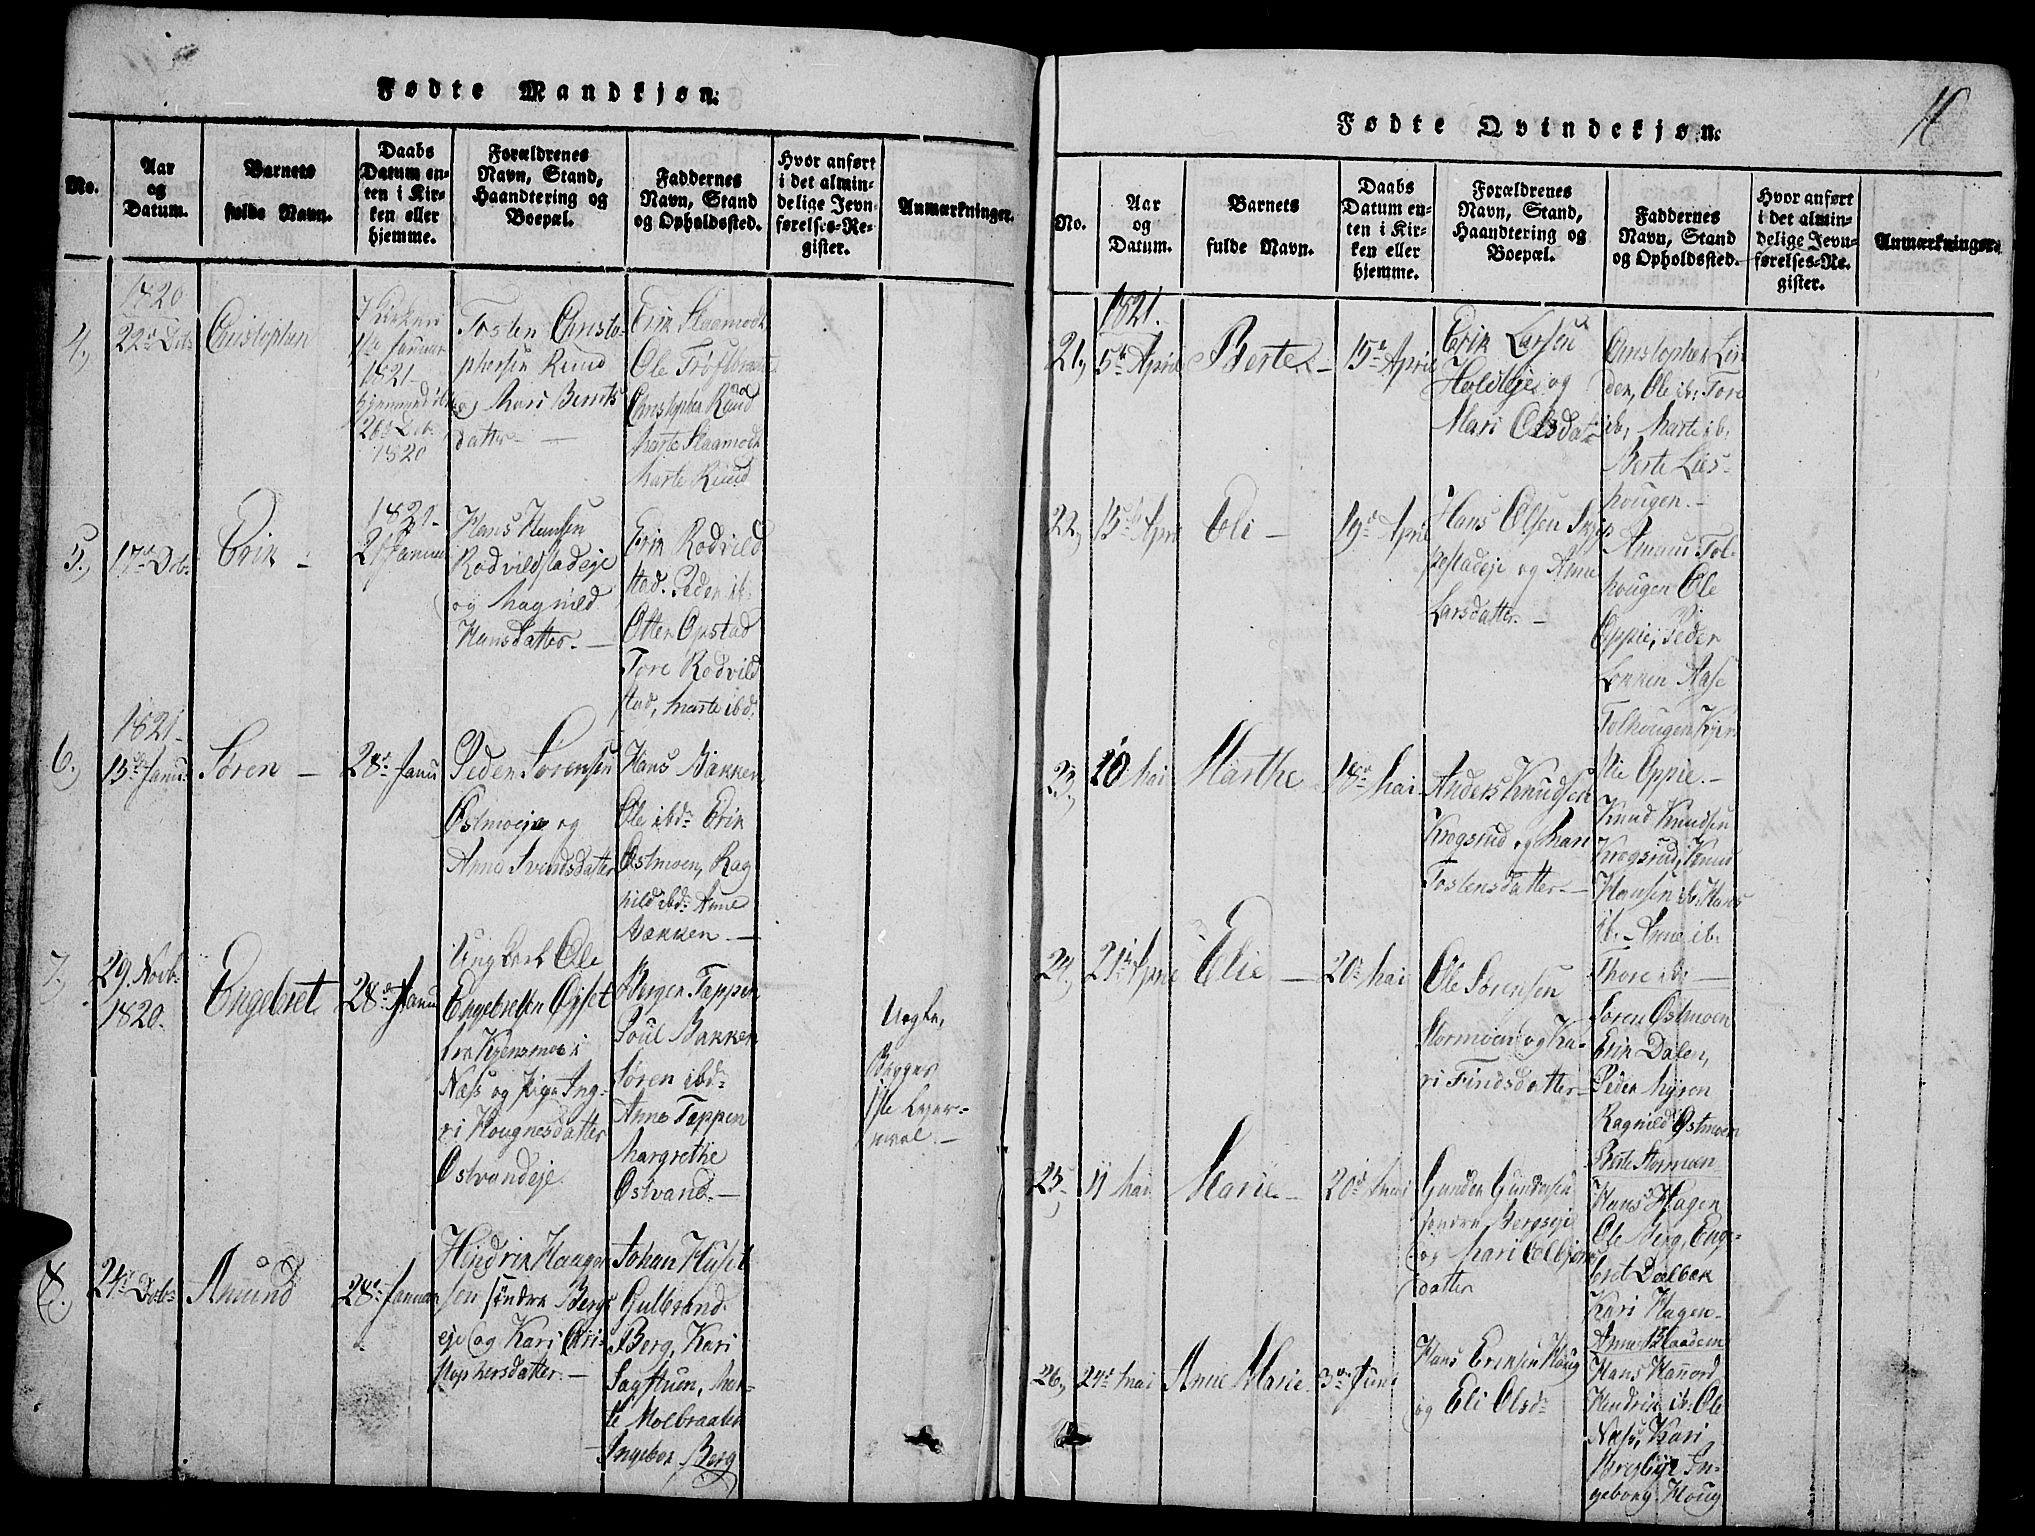 Fødte Mandkjøn.
No.
Aar
og
Datum.
Barnets
fulde Navn.
Daabs
Datum en-
ten i Kir-
ken eller
hjemme.
Forældrenes
Navn, Stand,
Haandtering og
Boepæl.
Faddernes
Navn, Stand
og Opholdssted.
Hvor anført
i det almin-
delige Jevn-
førelses-Re-
gister.
Anmærkninger.
4.,
1820
22de Debr
Christopher
I Kirken
Januar
1821
26de Debr
1820
Tosten Christo-
phersen Ruud
og Mari Bernts
datter
Erik Slaamodt
Ole
Christopher Ruud
Marte Slaamodt
Marte Ruud
5.,
17de Debr
Erik
1821
21 Januar
Hans Hansen
Rodvildstadeje
og Magnild
Hansdatter.
Erik Rodvild
stad. Peder ib.
Otter Opstad
Tore Rodvild
stad, Marte ibd.
6.,
1821
13de Janu.
Søren
28de Janu
Peder Sørensen
Østmoeje og
Anne Svendsdatter
Hans Bakken
Ole ibd. Erik
Østmoen, Rag
nild ibd. Anne
Bakken.
7.,
29. Novbr
1820.
Engebret
28de Janu
Ung Karl Ole
Engebretsen
fra Kjensmoe i
Næss og Pige Ing-
ri Hougnesdatter
Østvandeje
Børger Tappen
Poul Bakken
Søren ibd.
Anne Tappen
Margrethe
Østvand.
Uegte,
Begges
1ste Leier-
maal.
8.
24de Debr
Amund
28de Januar
Hendrik Haagen
sen søndre Bergs
eje og Kari Chri-
stophersdatter.
Johan Hyset
Gulbrand
Berg, Kari
Sagstuen, Mar-
te Molbraaten
Ingebor Berg
Fødte Qvindekjøn.
No.
Aar
og
Datum.
Barnets
fulde Navn.
Daabs
Datum en-
ten i Kir-
ken eller
hjemme.
Forældrenes
Navn, Stand,
Haandtering og
Boepæl.
Faddernes
Navn, Stand
og Opholdssted.
Hvor anført
i det almin-
delige Jevn-
førelses-Re-
gister.
Anmærkninger.
21,
1821.
5te April
Berte
15de April
Erik Larsen
og
Mari Olsdat.
Christopher Lin
den, Ole ib. Tore
ib, Marte ib,
Berte Lies-
hougen.
22,
13de Apri
Eli
19de April
Hans Olsen
og Anne
Larsdatter.
Amund Tol-
hougen Ole
Oppie, Peder
Løkken Aase
Tolhougen
Oppie.
23,
10 Mai
Marthe
18de Mai
Anders Knudsen
Krogsrud og Mari
Tostensdatter
Knud Knudsen
Krogsrud, Knud
Hansen ib. Hans
ib. Anne ib.
Thore ibd
24,
21de April
Elie
20de Mai
Ole Sørensen
Stormoen og Ka-
ri Findsdatter
Søren Østmoen
Erik Dalen,
Peder Myren
Ragnild Østmoen
Berte Stormoen
25,
11 Mai
Marie
20de Mai
Gunder Gundersen
søndre Bergseje
og Mari Colbjørns
datter
Hans Hagen
Ole Berg, Enge-
bret Dælbæk
Kari Hagen
Anne Blaadem
26,
24de Mai
Anne Marie
3die Juni
Hans Eriksen Houg
og Eli Olsd.
Hans
Hendrik ib. Ole
Næss, Kari
In-
geborg Houg